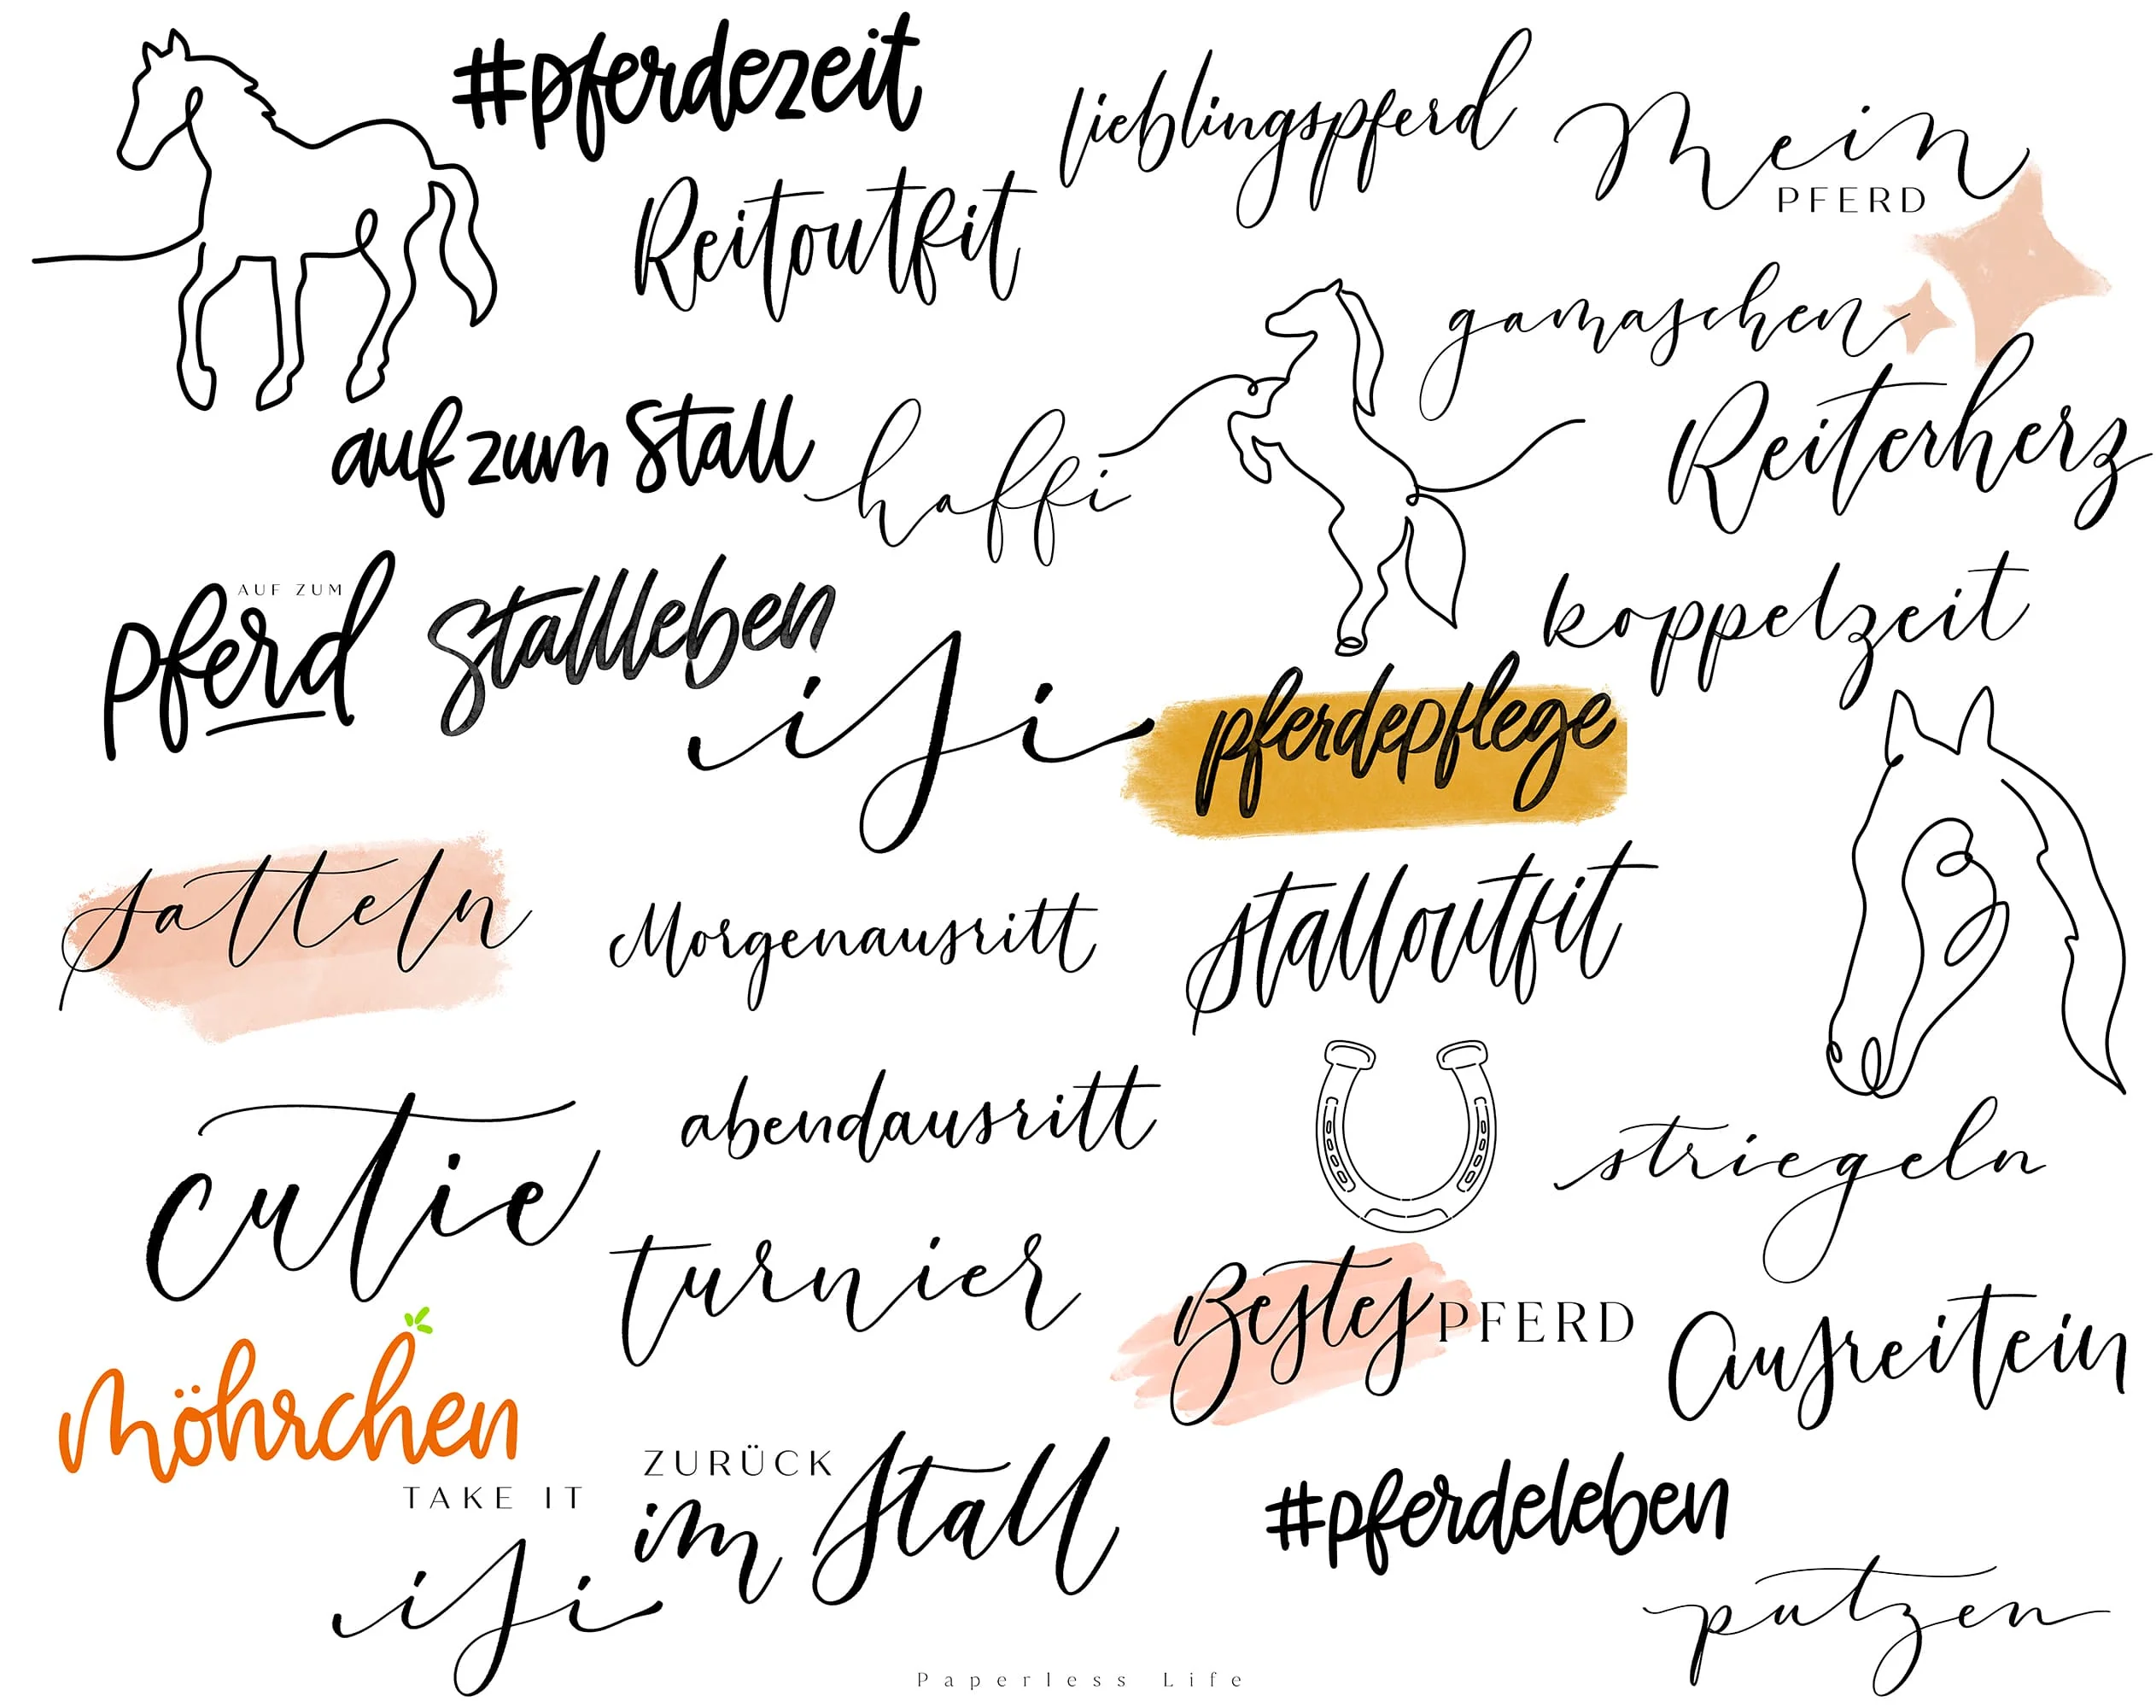 #pferdezeit
lieblingspferd
Mein
PFERD
Reitoutfit
gamaschen
Reiterherz
auf zum Stall
haffi
AUF ZUM
Pferd
Stallleben
koppelzeit
isi
pferdepflege
satteln
Morgenausritt
stalloutfit
abendausritt
cutie
striegeln
turnier
Bestes PFERD
Ausreitein
möhrchen
ZURÜCK
im Stall
TAKE IT
isi
#pferdeleben
putzen
Paperless Life